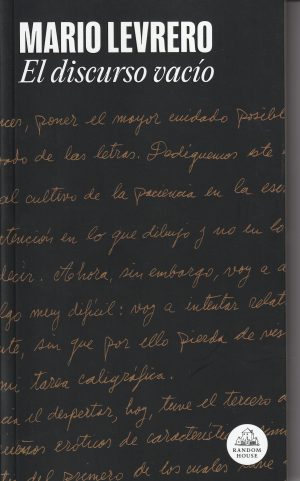 MARIO LEVRERO
El discurso vacío
nces, poner el mayor cuidado posibl
ado de las letras. Dediquemos este
al cultivo de la paciencia en la esc
tención en lo que dibujo y no en lo
decir. Ahora, sin embargo, voy a a
lgo muy difícil: voy a intentar relat
te, sin que por ello pierda de vis
mi tarea caligráfica.
cia el despertar, hoy, tuve el tercero d
ueños eróticos de característic
til del primero de los cuales
RANDOM
HOUSE